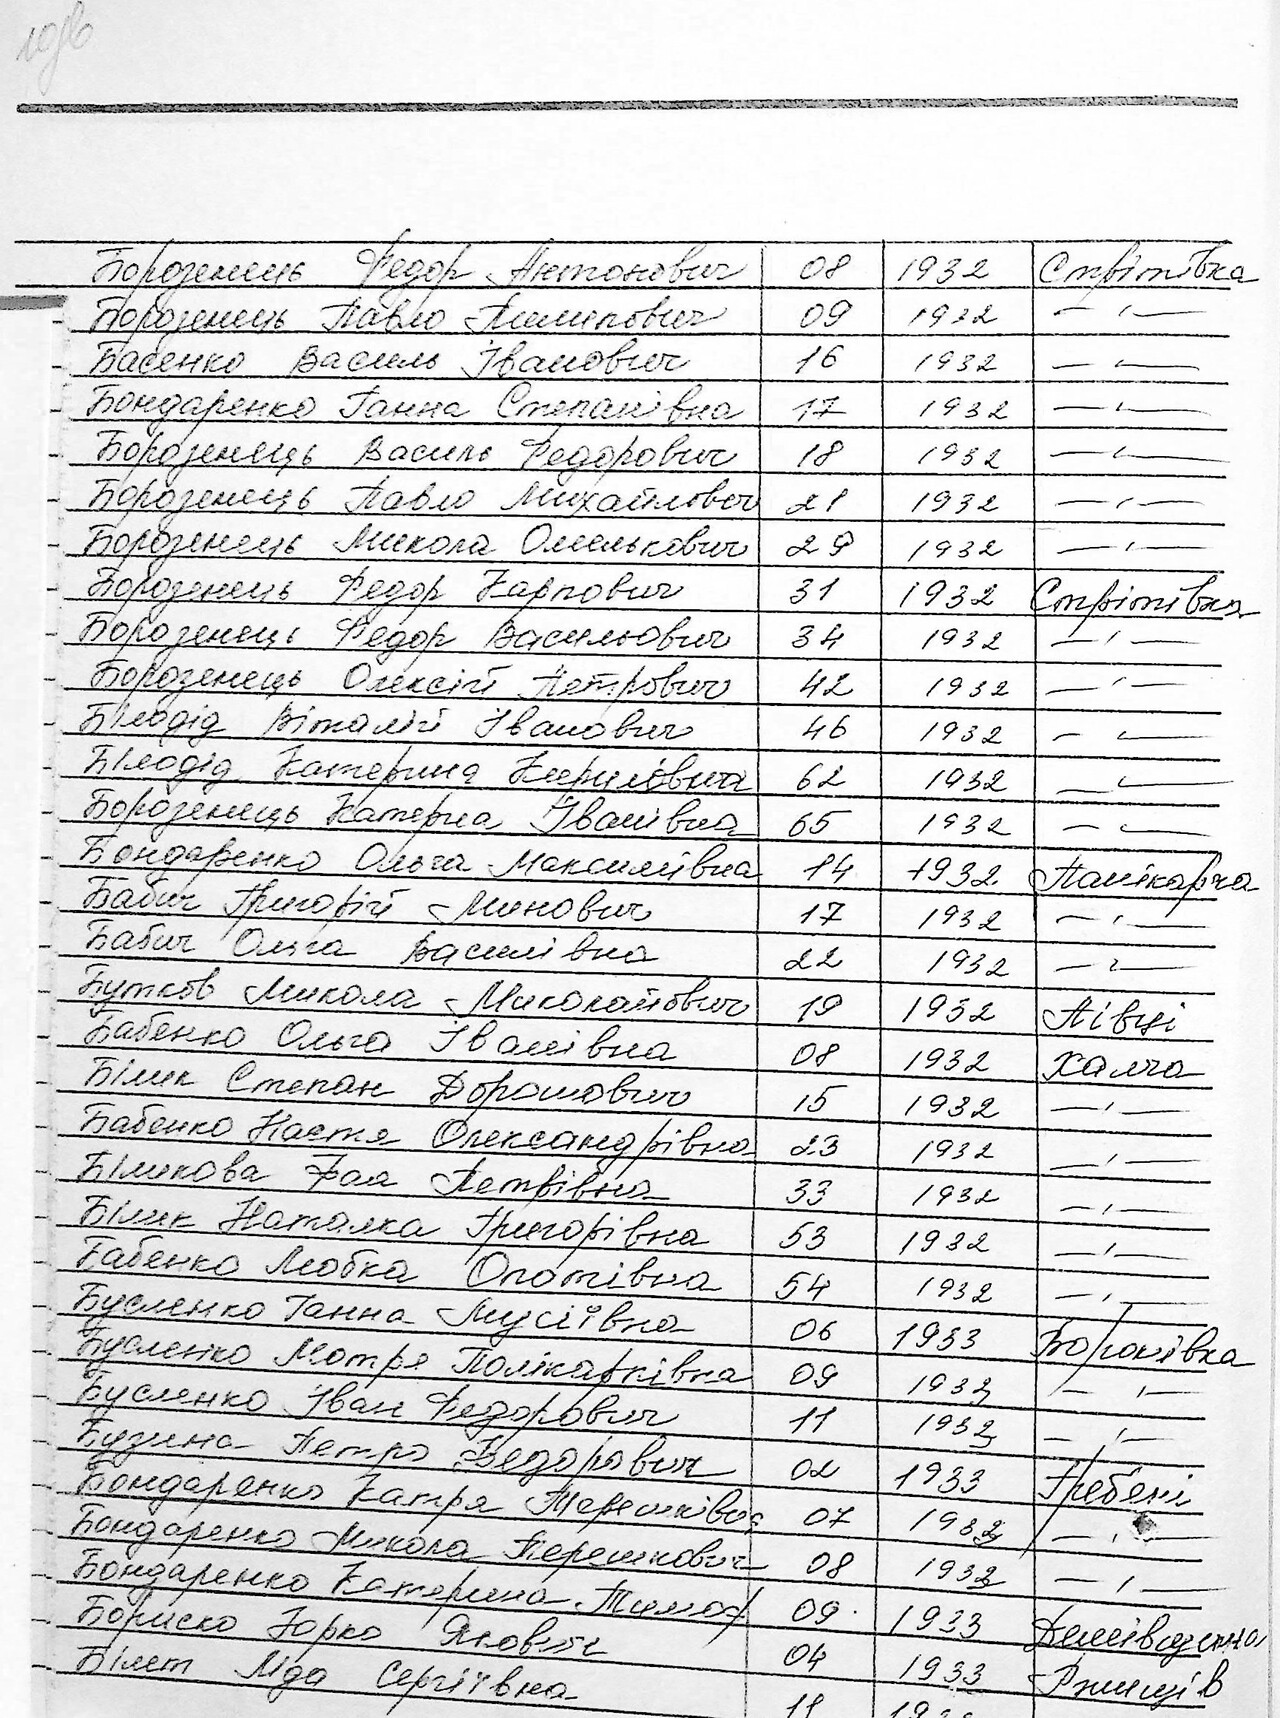 Борозенець Федор Антонович 08 1932 Стрітівка
Борозенець Павло Пилипович 09 1932 — " —
Басенко Василь Іванович 16 1932 — " —
Бондаренко Ганна Степанівна 17 1932 — " —
Борозенець Василь Федорович 18 1932 — " —
Борозенець Павло Михайлович 21 1932 — " —
Борозенець Микола Омелькович 29 1932 — " —
Борозенець Федор Карпович 31 1932 Стрітівка
Борозенець Федор Васильович 34 1932 — " —
Борозенець Олексій Петрович 42 1932 — " —
Білодід Віталій Іванович 46 1932 — " —
Білодід Катерина Кирилівна 62 1932 — " —
Борозенець Катерна Іванівна 65 1932 — " —
Бондаренко Ольга Максимівна 14 1932 Панікарча
Бабич Григорій Минович 17 1932 — " —
Бабич Ольга Василівна 22 1932 — " —
Бутков Микола Миколайович 19 1932 Півці
Бабенко Ольга Іванівна 08 1932 Халча
Білик Степан Дорошович 15 1932 — " —
Бабенко Настя Олександрівна 23 1932 — " —
Біликова Фая Петрівна 33 1932 — " —
Білик Наталка Григорівна 53 1932 — " —
Бабенко Любка Опонівна 54 1932 — " —
Бусленко Ганна Мусіївна 06 1933 Горохівка
Бусленко Мотря Полікарпівна 09 1933 — " —
Бусленко Іван Федорович 11 1933 — " —
Бузина Петро Федорович 02 1933 Гребені
Бондаренко Катря Терешківна 07 1933 — " —
Бондаренко Микола Терешкович 08 1933 — " —
Бондаренко Катерина Тимоф 09 1933
Бориско Юрко Якович 04 1933 Ржищів
Білет Ліда Сергіївна 11